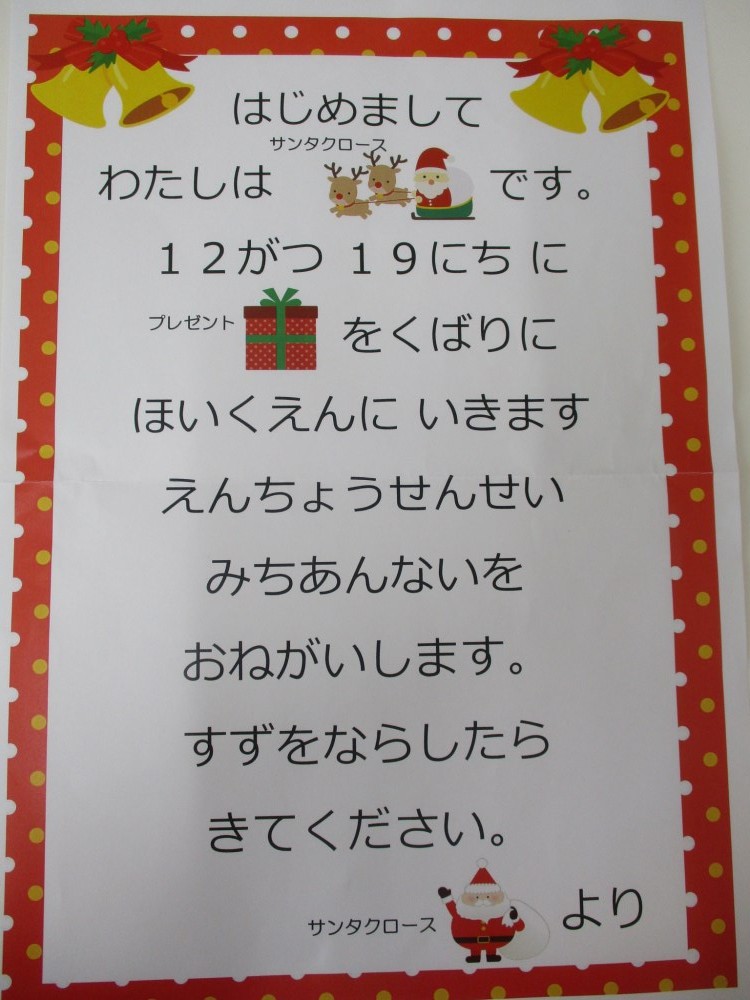 はじめまして
サンタクロース
わたしは です。
１２がつ １９にち に
プレゼント をくばりに
ほいくえんに いきます
えんちょうせんせい
みちあんないを
おねがいします。
すずをならしたら
きてください。
サンタクロース より